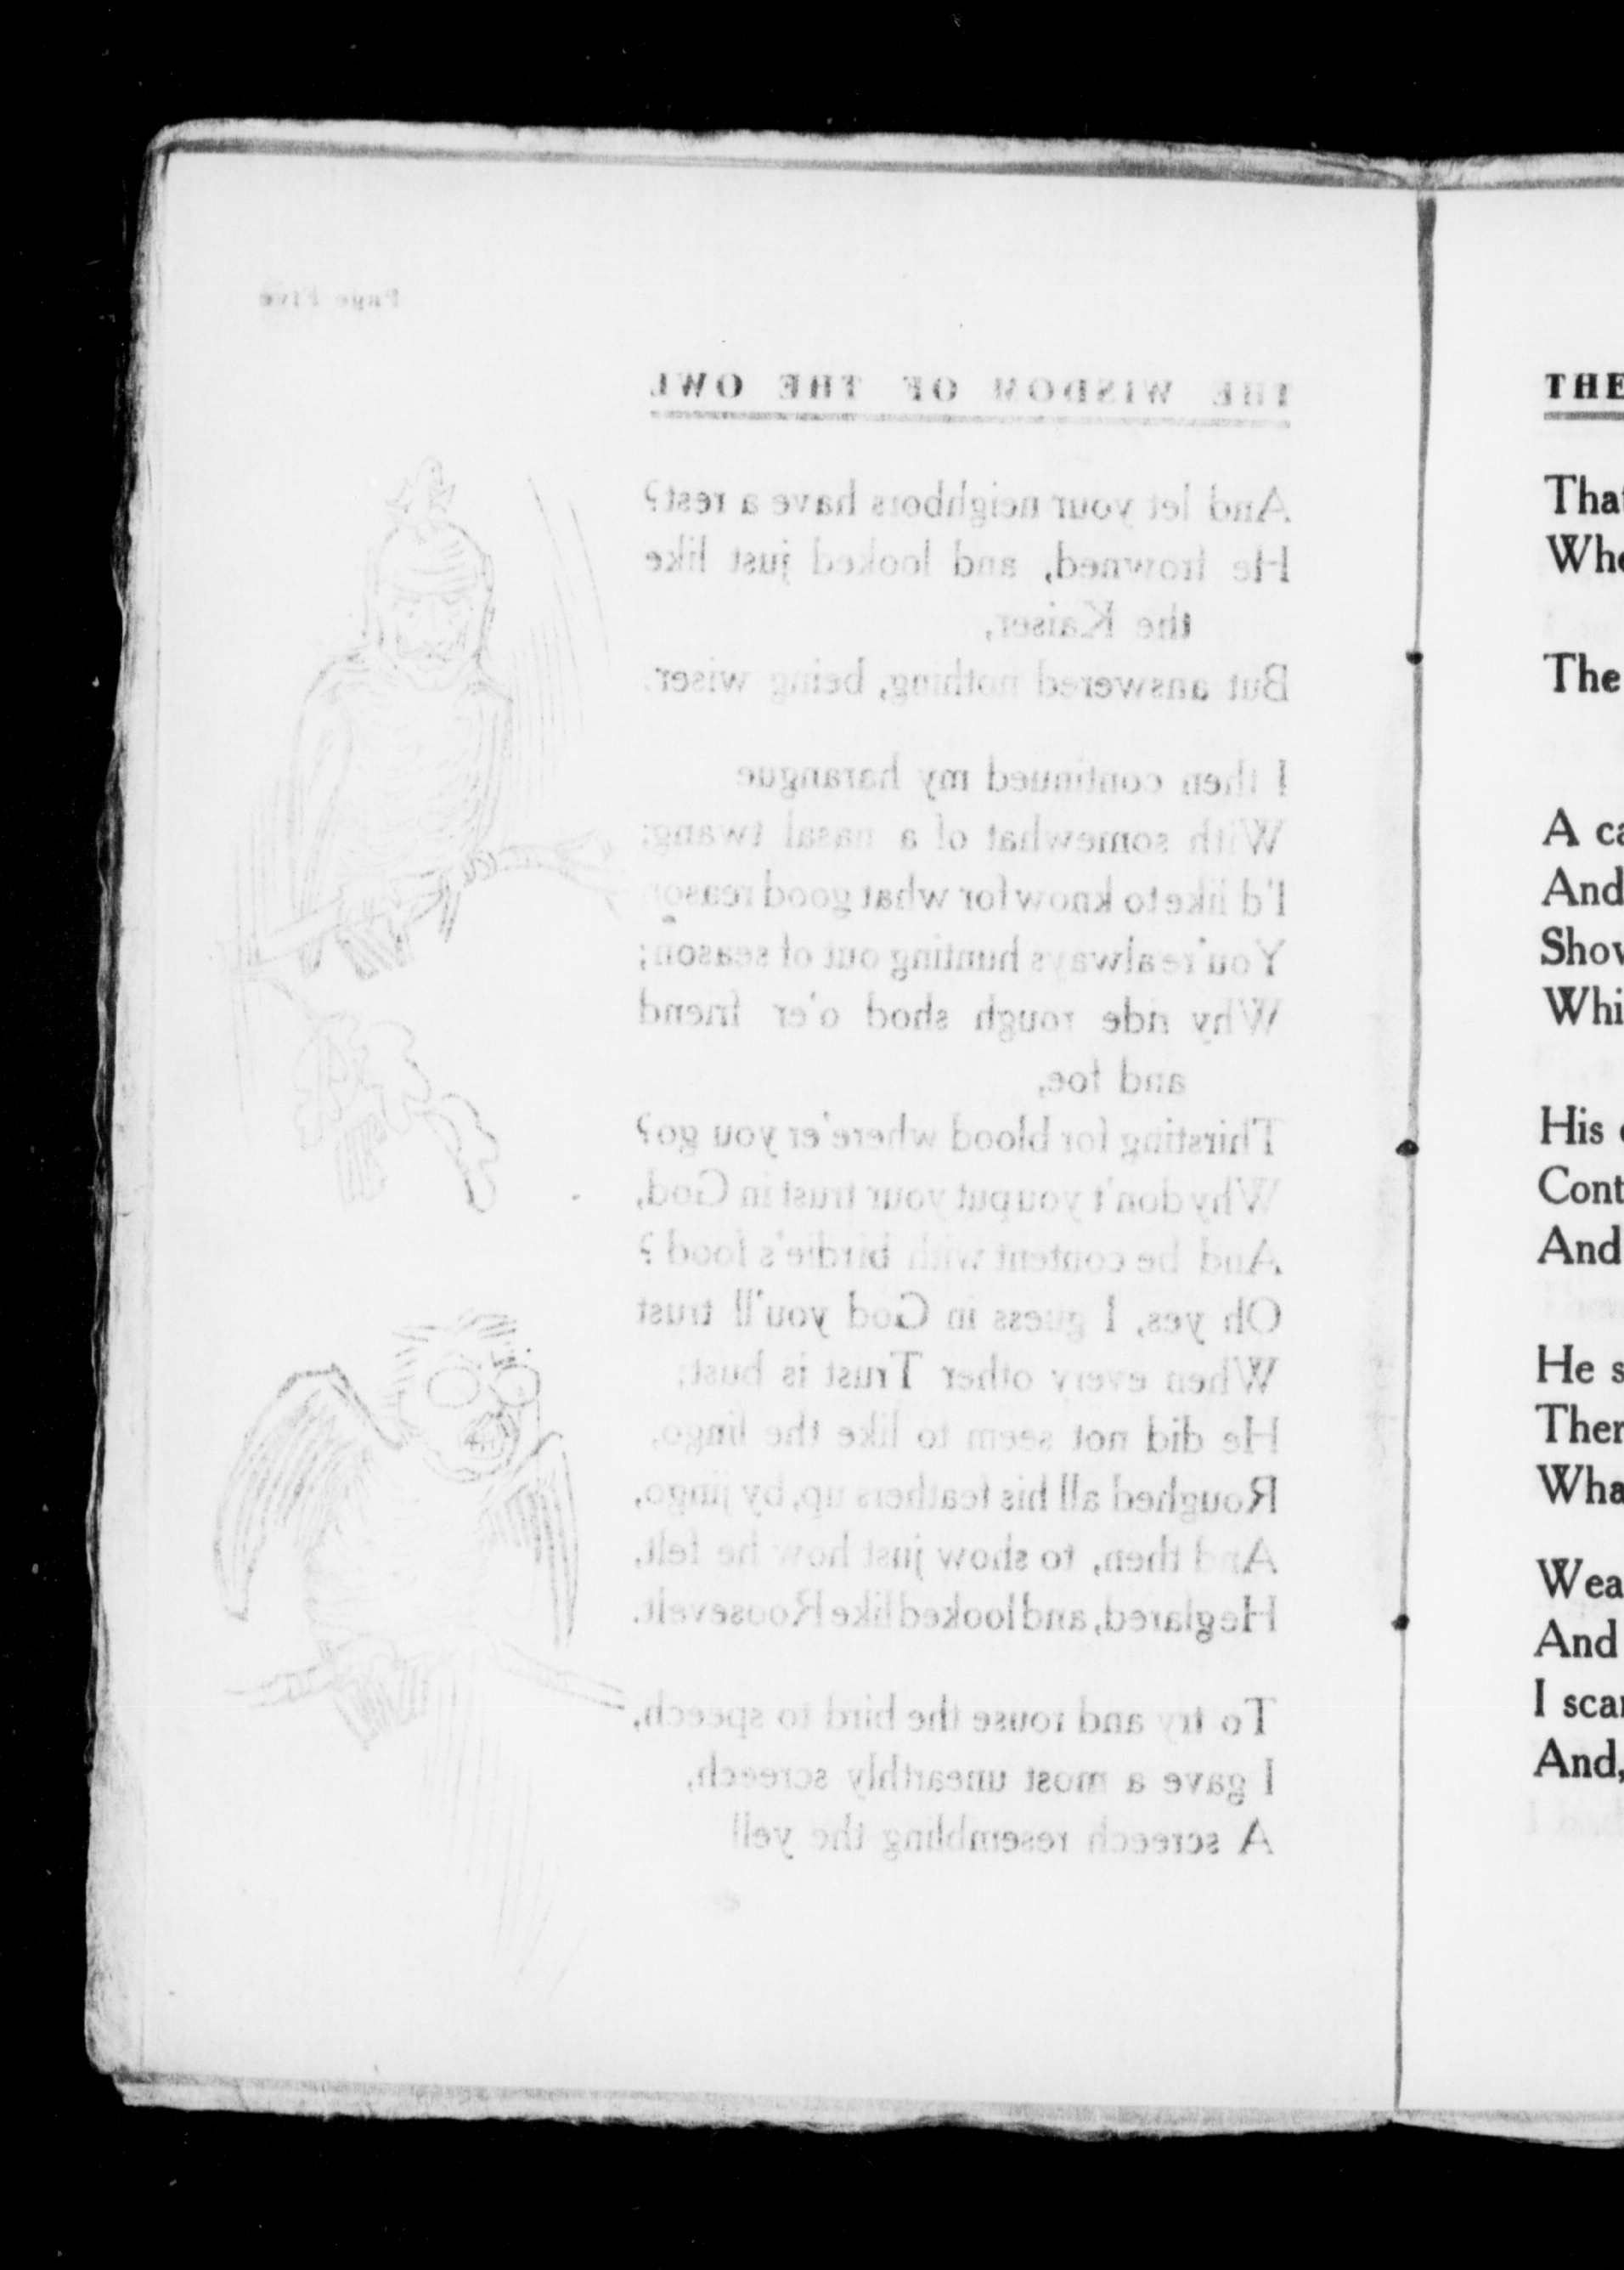 Page Five
THE WISDOM OF THE OWL
And let your neighbors have a rest?
He frowned, and looked just like
the Kaiser,
But answered nothing, being wiser.
I then continued my harangue
With somewhat of a nasal twang;
I'd like to know for what good reason
You're always hunting out of season;
Why ride rough shod o'er friend
and foe,
Thirsting for blood where'er you go?
Why don't you put your trust in God,
And be content with birdie's food?
Oh yes, I guess in God you'll trust
When every other Trust is bust;
He did not seem to like the lingo,
Roughed all his feathers up, by jingo,
And then, to show just how he felt,
He glared, and looked like Roosevelt.
To try and rouse the bird to speech,
I gave a most unearthly screech,
A screech resembling the yell
THE
The
A
And
His
And
He
And
I
And,